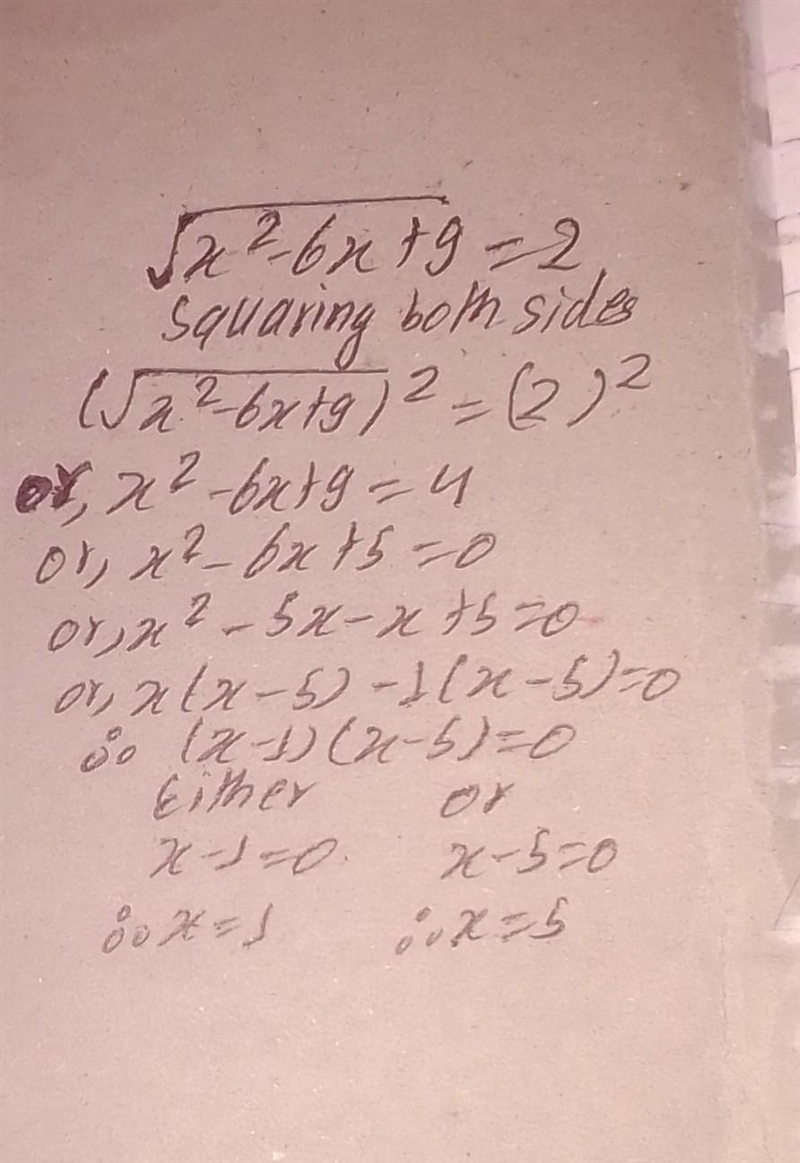 √x²-6x+9 = 2
Squaring both sides
(√x²-6x+9)² = (2)²
or, x² -6x+9 = 4
or, x² - 6x +5 = 0
or, x² - 5x - x +5=0
or, x(x-5) -1(x-5)=0
∴ (x-1)(x-5)=0
Either or
x-1=0. x-5=0
∴x=1 ∴x=5